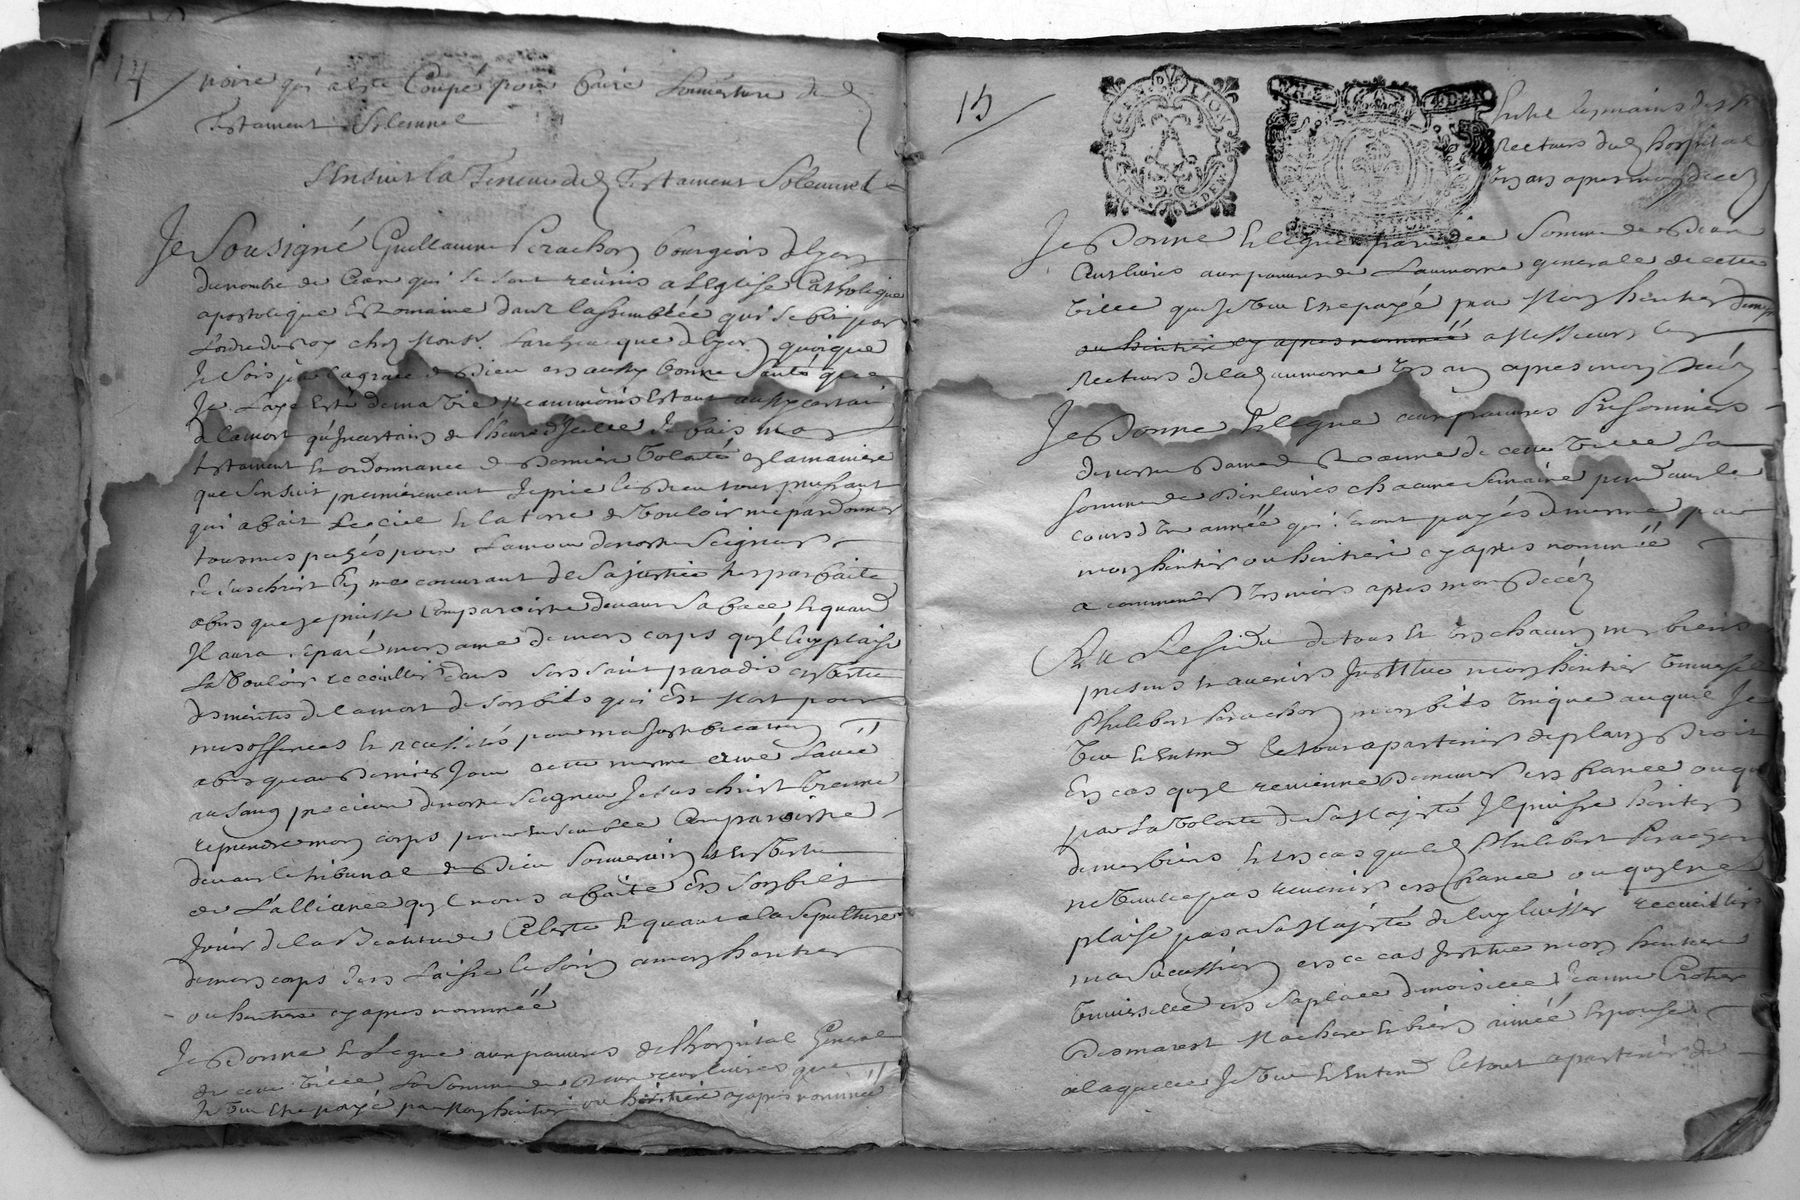 14
noire qui a esté Coupé pour faire Louverture dud
Testament Solemnel
Sensuit la Teneur dud Testament Solemnel
Je Sousigné Guillaume Perachon bourgeois de lyon
du nombre de Ceux qui se sont reünis a LEglise Catholique
apostolique & Romaine dans lassemblée qui se fit par
Lordre du Roy chez Monsr. Larcheveque de lyon quoique
Je Sois par la grace de Dieu en aussy bonne Santé que
Je Laye Esté de ma Vie neanmoins Estant aussy certain
de la mort qu'Incertain de l'heure d'Icelle Je fais mon
testament et ordonnance de Derniere Volonté en la maniere
que sensuit premierement Je prie le Dieu tout puissant
qui a fait Le Ciel et la terre de Vouloir me pardonner
tous mes pechés pour Lamour de nostre Seigneur
Jesus Christ En me couvrant de Sa justice tres parfaite
afin que je puisse Comparoistre devant Sa face et quand
Il aura separé mon ame de mon corps qu'il luy plaise
La Vouloir recueillir dans son saint paradis en Vertu
des mérites de la mort de son fils qui Est Mort pour
mes offences et recussité pour ma Justification
afin quau Dernier Jour cette mesme ame Lavée
au sang precieux de nostre Seigneur Jesus Christ Vienne
reprendre mon corps pour Ensemble Comparoistre
devant le tribunal de Dieu Souverain et en Vertu
de L'alliance qu'il nous a faite En son fils
Jouir de la Béatitude Celeste Et quant a la Sepulture
de mon corps Jen Laisse le soin a mon heritier
ou heritiere cy apres nommée
Je Donne et Legue aux pauvres de lhospital General
de cette Ville La Somme de Deux cens livres que
Je Veu Estre payé par Mon heritier ou héritiere cy apres nommée
15
GN. DE LYON
Entre les mains des Srs
Recteurs dud hospital
Un an apres mon decez
Je Donne et legue pareille Somme de Deux
Cens livres aux pauvres de Laumone generale de cette
Ville que Je Veu Estre payé par Mon heritier
ou heritiere cy apres nommée a Messieurs les
Recteurs de lad aumone Un an apres mon Decez
Je Donne et legue aux pauvres Prisonniers
de nostre Dame de Roanne de cette Ville La
Somme de Dix livres chacune Semaine pendant le
cours d'Une année qui seront payés de mesme par
mon heritier ou heritiere cy apres nommée
a commencer Un mois apres mon Decez
Au Residu de tous Et Uns chacuns mes biens
presens et avenirs Jnstitue mon heritier Universel
Philibert Perachon mon fils Unique auquel Je
Veu et Entend Le tout apartenir de plain Droit
En cas qu'il revienne Demeurer en france ou que
par La Volonté de Sa Majesté Il puisse hériter
de mes biens Et en cas que led Philibert Perachon
ne Veuille pas revenir en france ou qu'il ne
plaise pas a Sa Majesté de luy laisser recueillir
ma Succession en ce cas Jnstitue mon heritiere
Universelle en Sa place demoiselle Jeanne Crotier
Desmarest Ma chere et bien aimée Epouse
a laquelle Je Veu Et Entend Le tout apartenir de